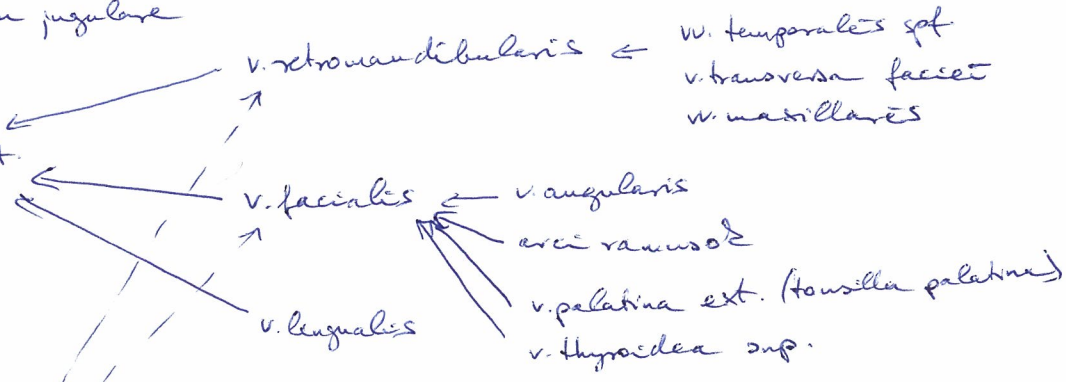 jugulare
v. retromandibularis ← vv. temporales spf
v. transversa faciei
vv. maxillares
t.
v. facialis ← v. angularis
arci ramusok
v. palatina ext. (tonsilla palatina)
v. lingualis
v. thyroidea sup.